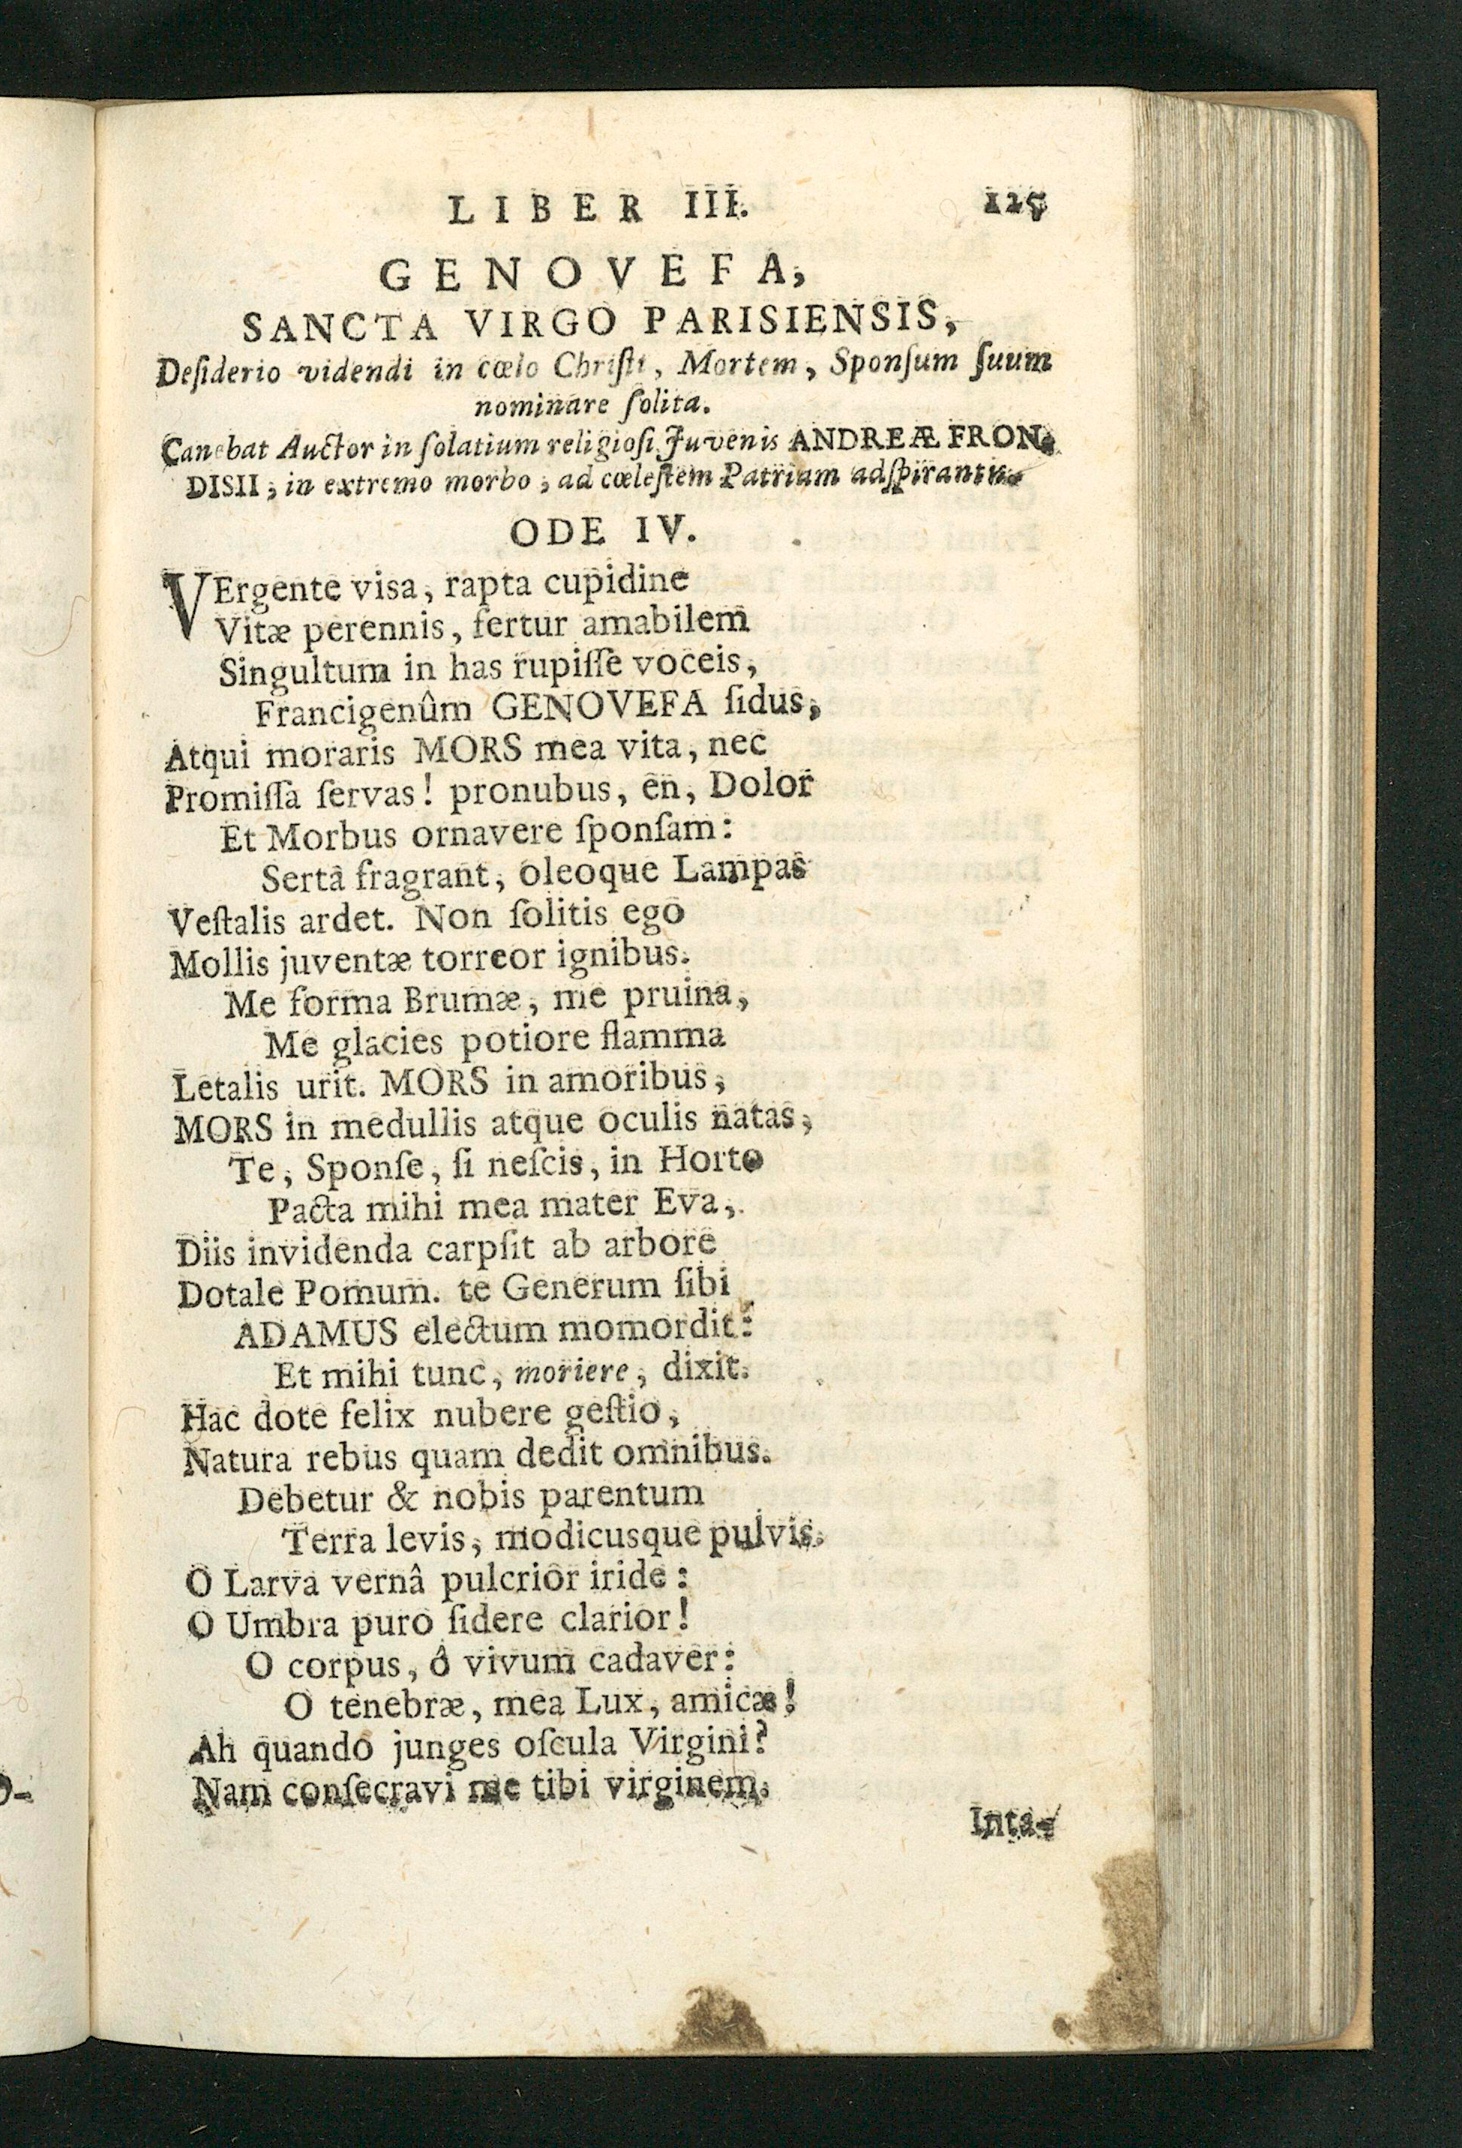 LIBER III. 125
GENOVEFA,
SANCTA VIRGO PARISIENSIS,
Deſiderio videndi in cœlo Chriſti, Mortem, Sponſum ſuum
nominare ſolita.
Canebat Auctor in ſolatium religioſi Juvenis ANDREÆ FRON-
DISII, in extremo morbo, ad cœleſtem Patriam adſpirantis.
ODE IV.
VErgente visa, rapta cupidine
Vitæ perennis, fertur amabilem
Singultum in has rupiſſe voceis,
Francigenûm GENOVEFA ſidus,
Atqui moraris MORS mea vita, nec
Promiſſa ſervas! pronubus, en, Dolor
Et Morbus ornavere ſponſam:
Sertâ fragrant, oleoque Lampas
Veſtalis ardet. Non ſolitis ego
Mollis juventæ torreor ignibus.
Me forma Brumæ, me pruina,
Me glacies potiore flamma
Letalis urit. MORS in amoribus,
MORS in medullis atque oculis natas,
Te, Sponſe, ſi neſcis, in Horto
Pacta mihi mea mater Eva,
Diis invidenda carpſit ab arbore
Dotale Pomum. te Generum ſibi
ADAMUS electum momordit:
Et mihi tunc, moriere, dixit.
Hac dote felix nubere geſtio,
Natura rebus quam dedit omnibus.
Debetur & nobis parentum
Terra levis, modicusque pulvis.
O Larva vernâ pulcrior iride:
O Umbra puro ſidere clarior!
O corpus, ô vivum cadaver:
O tenebræ, mea Lux, amicæ!
Ah quando junges oſcula Virgini?
Nam conſecravi me tibi virginem.
Inta-